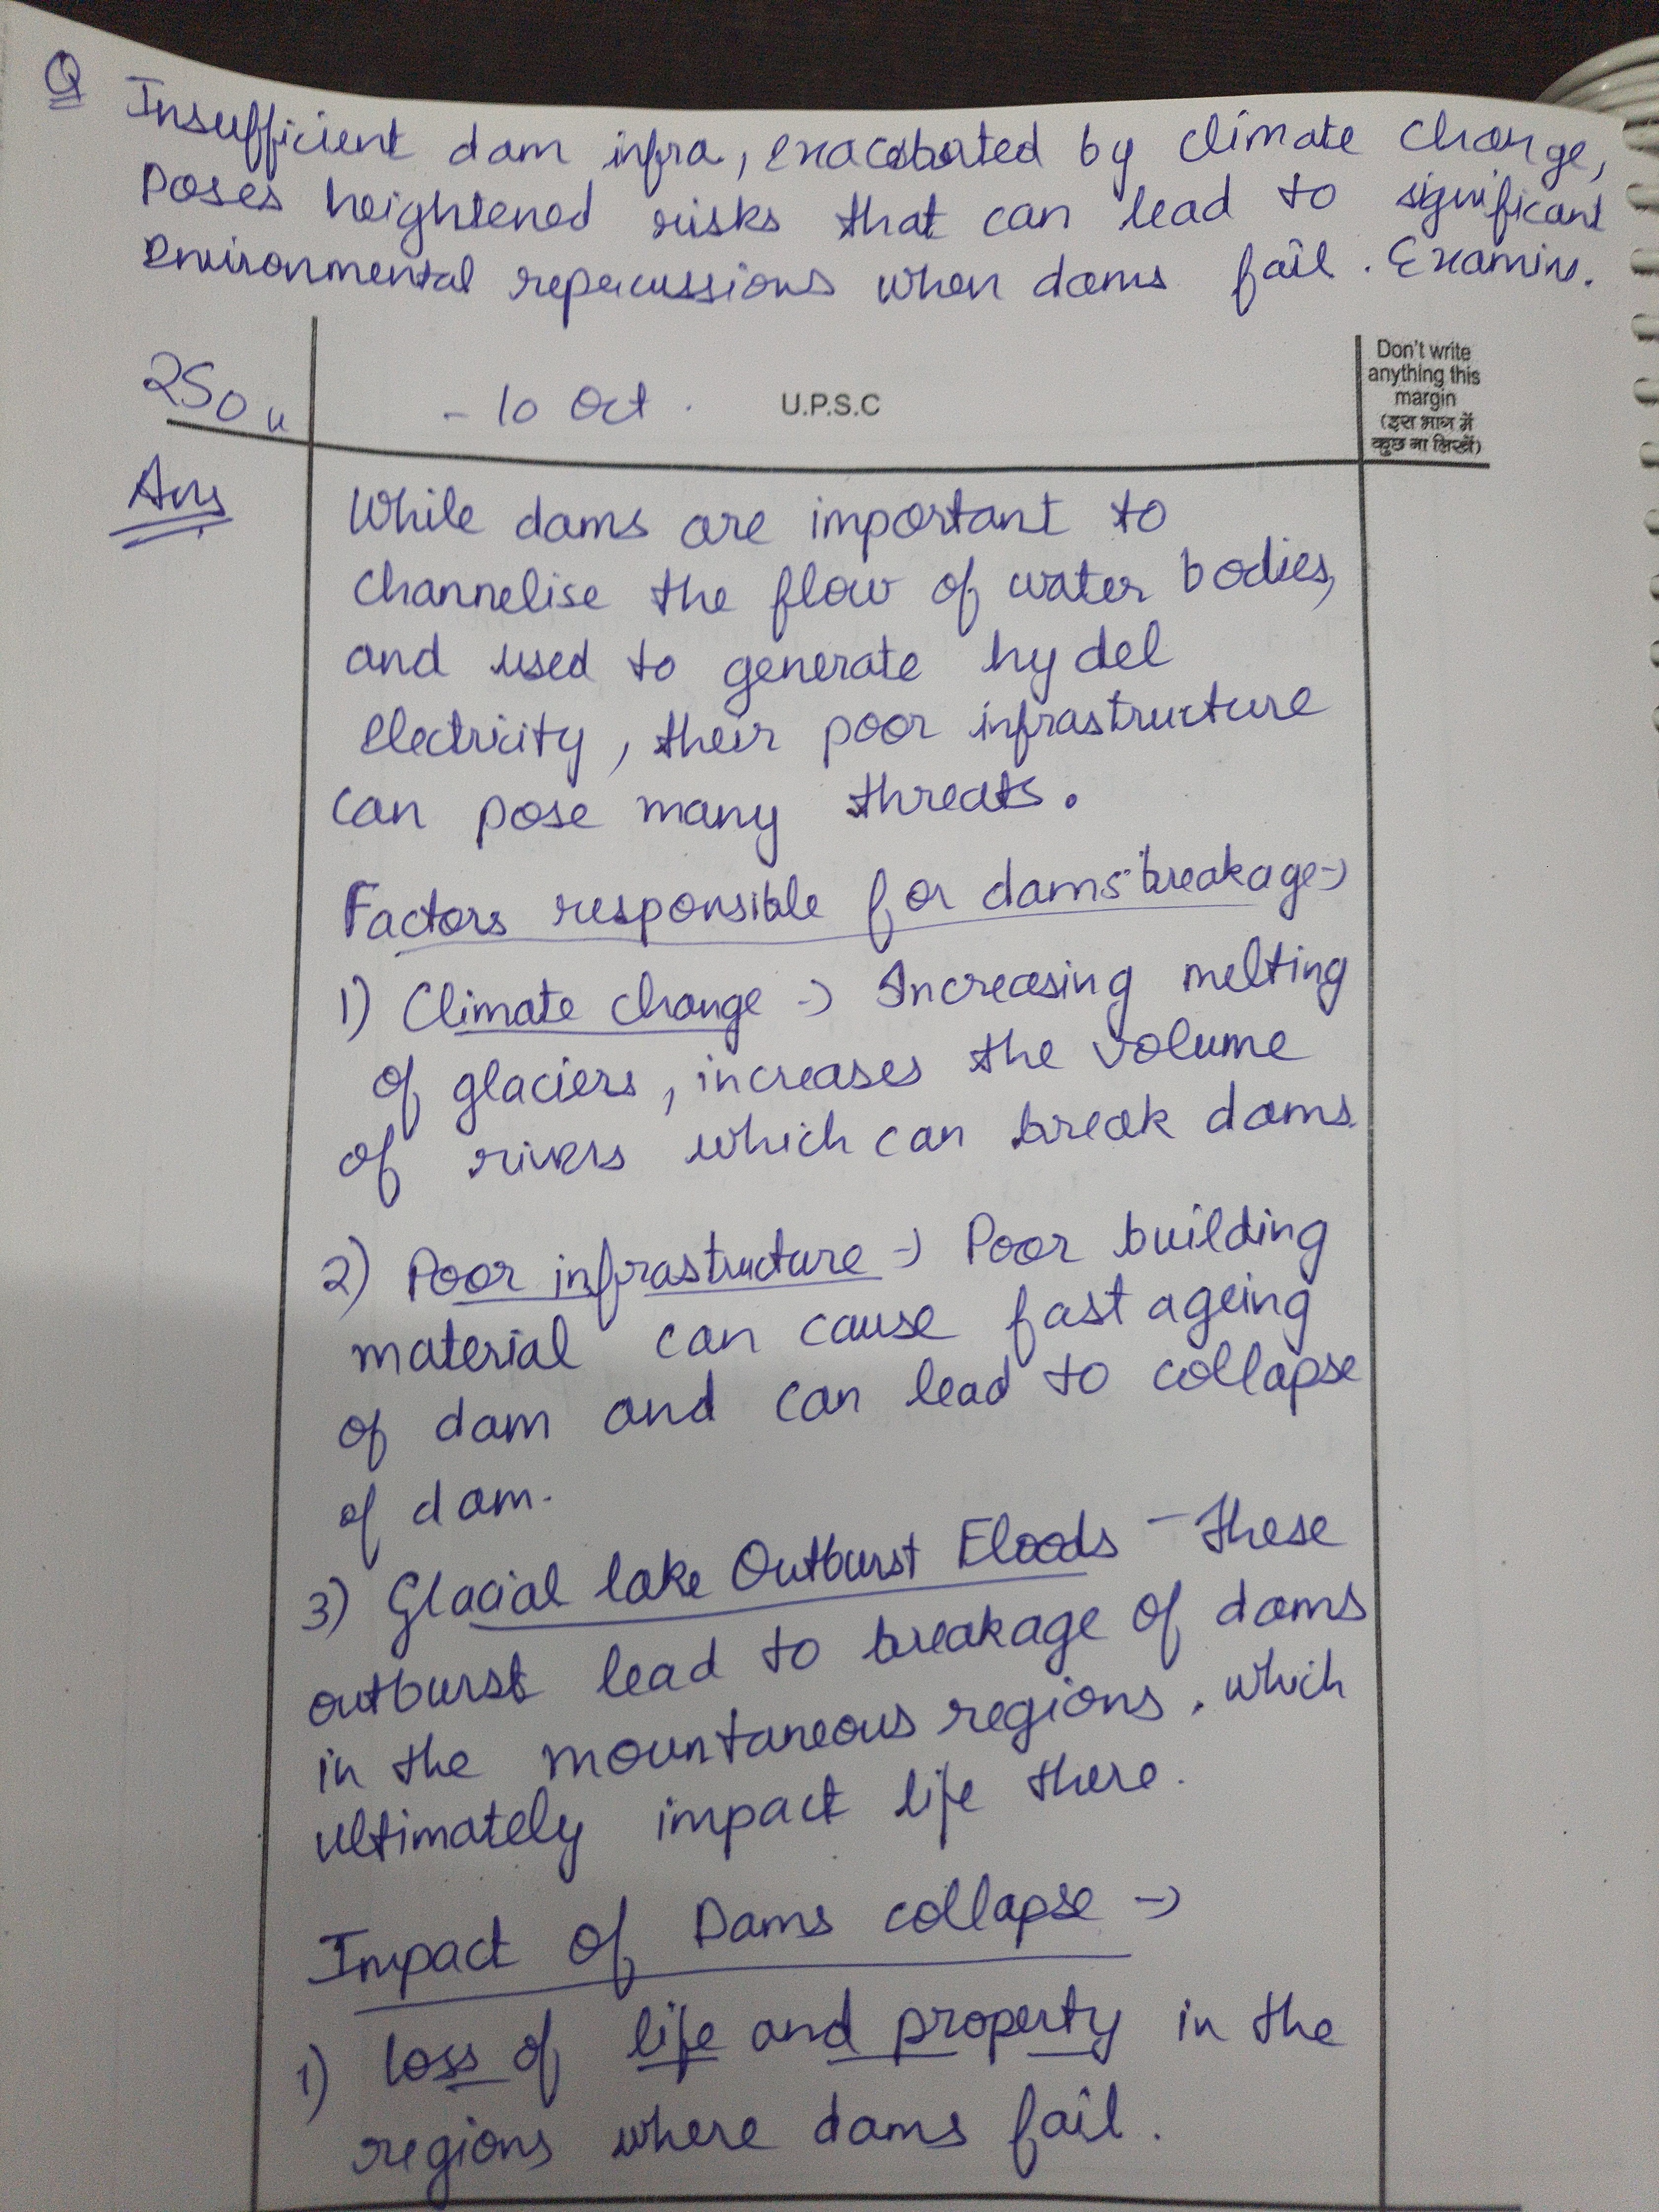 Q Insufficient dam infra, exacerbated by climate change,
poses heightened risks that can lead to significant
environmental repercussions when dams fail. Examine.
250 w
- 10 Oct.
U.P.S.C
Don't write
anything this
margin
(इस भाग में
कुछ ना लिखें)
Ans
While dams are important to
channelise the flow of water bodies,
and used to generate hydel
electricity, their poor infrastructure
can pose many threats.
Factors responsible for dams breakage →
1) Climate change → Increasing melting
of glaciers, increases the volume
of rivers which can break dams.
2) Poor infrastructure → Poor building
material can cause fast ageing
of dam and can lead to collapse
of dam.
3) Glacial lake Outburst Floods - these
outburst lead to breakage of dams
in the mountaneous regions, which
ultimately impact life there.
Impact of Dams collapse →
1) loss of life and property in the
regions where dams fail.